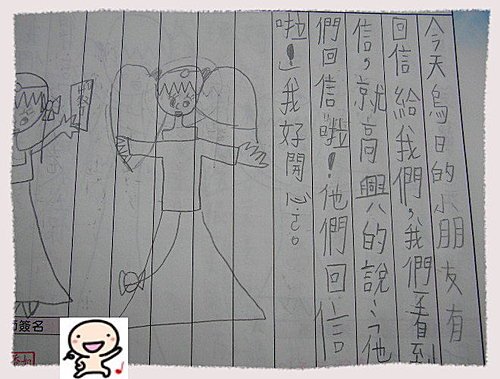 今天烏日的小朋友有
回信給我們，我們看到
信，就高興的說：「他
們回信啦！他們回信
啦！」我好開心ㄛ。
簽名